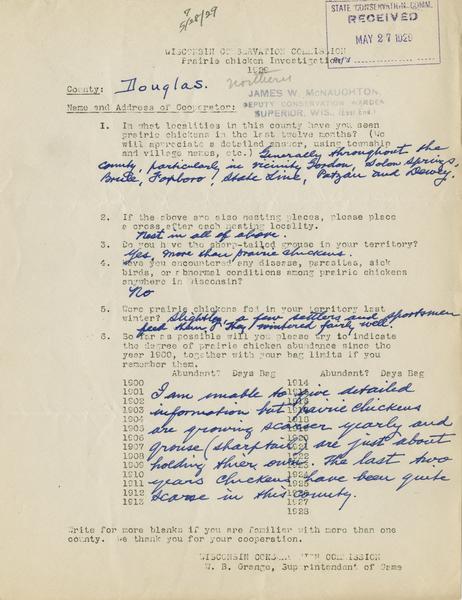 7
5/28/29
STATE CONSERVATION COMM.
RECEIVED
MAY 27 1929
Ref'd
WISCONSIN CONSERVATION COMMISSION
Prairie chicken Investigation
County: Douglas. Northern
JAMES W. McNAUGHTON,
DEPUTY CONSERVATION WARDEN
SUPERIOR, WIS.
Name and Address of Cooperator:
1. In what localities in this county have you seen
prairie chickens in the last twelve months? (We
will appreciate a detailed answer, using township
and village names, etc.) Generally throughout the
county, particularly in vicinity Gordon, Solon Springs,
Brule, Foxboro, State Line, Patzau and Dewey.
2. If the above are also nesting places, please place
a cross after each nesting locality.
Nest in all of above.
3. Do you have the sharp-tailed grouse in your territory?
Yes, more than prairie chickens.
4. Have you encountered any disease, parasites, sick
birds, or abnormal conditions among prairie chickens
anywhere in Wisconsin?
No
5. Were prairie chickens fed in your territory last
winter? Slightly, a few settlers and sportsmen
feed them. They wintered fairly well.
6. So far as possible will you please try to indicate
the degree of prairie chicken abundance since the
year 1900, together with your bag limits if you
remember them.
Abundant? Days Bag Abundant? Days Bag
1900 1914
1901 I am unable to give detailed
1902
1903 information but prairie chickens
1904
are growing scarcer yearly and
1906
1907 grouse (sharptail) are just about
1908
1909 holding their own. The last two
1910
1911 years chickens have been quite
1912 scarce in this county.
1913 1927
1928
Write for more blanks if you are familiar with more than one
county. We thank you for your cooperation.
WISCONSIN CONSERVATION COMMISSION
W. B. Grange, Superintendent of Game